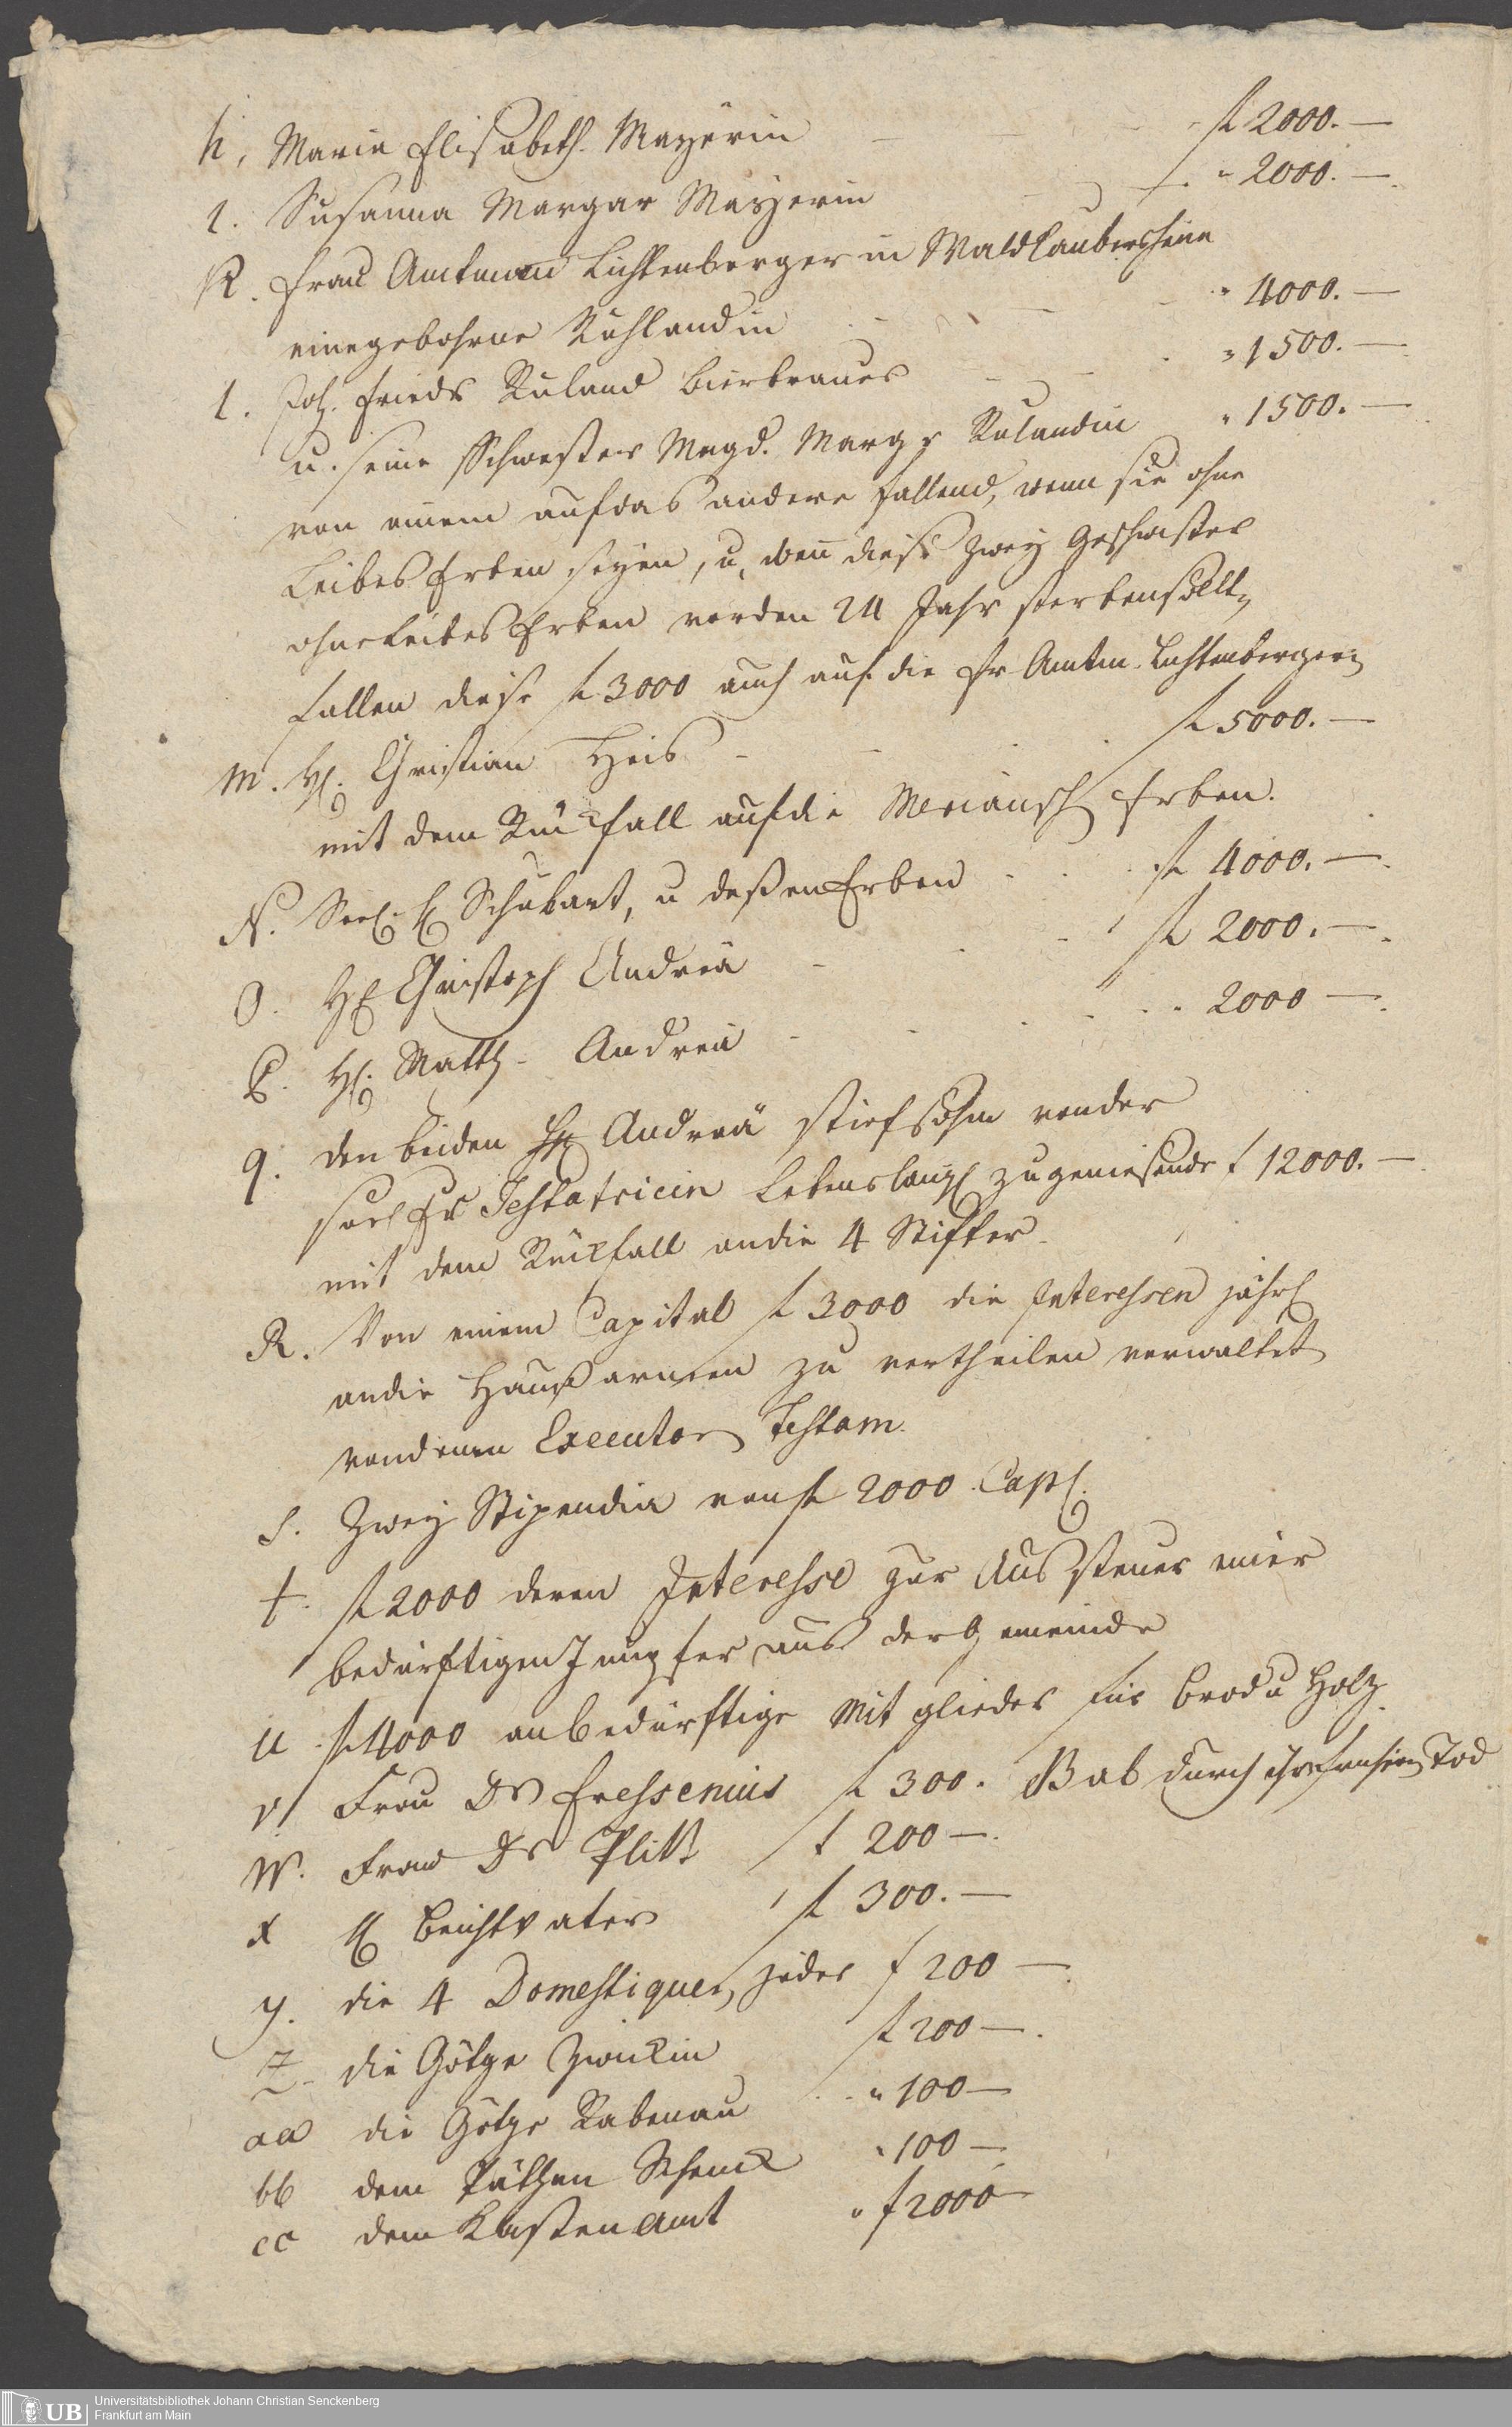 h. Maria Elisabeth. Mayerin - - - f 2000. —
i. Susanna Margar Mayerin - - " 2000. —
K. Frau Amtmann Lichtenberger in Waldlaubersheim
eine gebohrne Ruhlandin - - " 4000. —
l. Joh. Friedr Ruland Bierbrauer - - " 1500. —
u. seine Schwester Magd. Marg Rulandin " 1500. —
von einem auf das andere fallend, wenn sie ohne
Leibes Erben seyen, u, wen diese zwey Geschwister
ohne Leibes Erben vor den 24 Jahr sterben sollt
fallen diese f 3000 auch auf die Fr Amtm. Lichtenberger
m. H. Christian Heis - - f 5000. —
mit dem Rückfall auf die Meriansch Erben.
N. Seel. H Schubart, u deßen Erben - - f 4000. —
O. H Christoph Andreä - - f 2000. —
P. H. Matth. Andreä - - " 2000 —
q. den beiden HH Andreä Stiefsöhn von der
seel Fr Testatricin Lebenslängl zu geniesende f 12000. —
mit dem Rückfall an die 4 Stifter.
R. Von einem Capital f 3000 die Interessen jährl
an die Hausarmen zu vertheilen verwaltet
von denen Executor Testam.
S. Zwey Stipendia von f 2000 Capl.
t. f 2000 deren Interesse zur Aussteuer einer
bedürftigen Jungfer aus der Gemeinde
u f 4000 an bedürftige Mitglieder für Brod u Holz.
v Frau Dr Fressenius f 300. ab durch Tod
W. Frau Dr Plitt f 200 —.
x H Beichtvater f 300. —
y. die 4 Domestiquen, jeder f 200 —
Z. die Göthge Zwickin f 200 —.
aa die Göthge Rabenau " 100 —
bb dem Päthgen Schenck " 100 —
cc dem Kasten Amt " f 2000
UB
Universitätsbibliothek Johann Christian Senckenberg
Frankfurt am Main